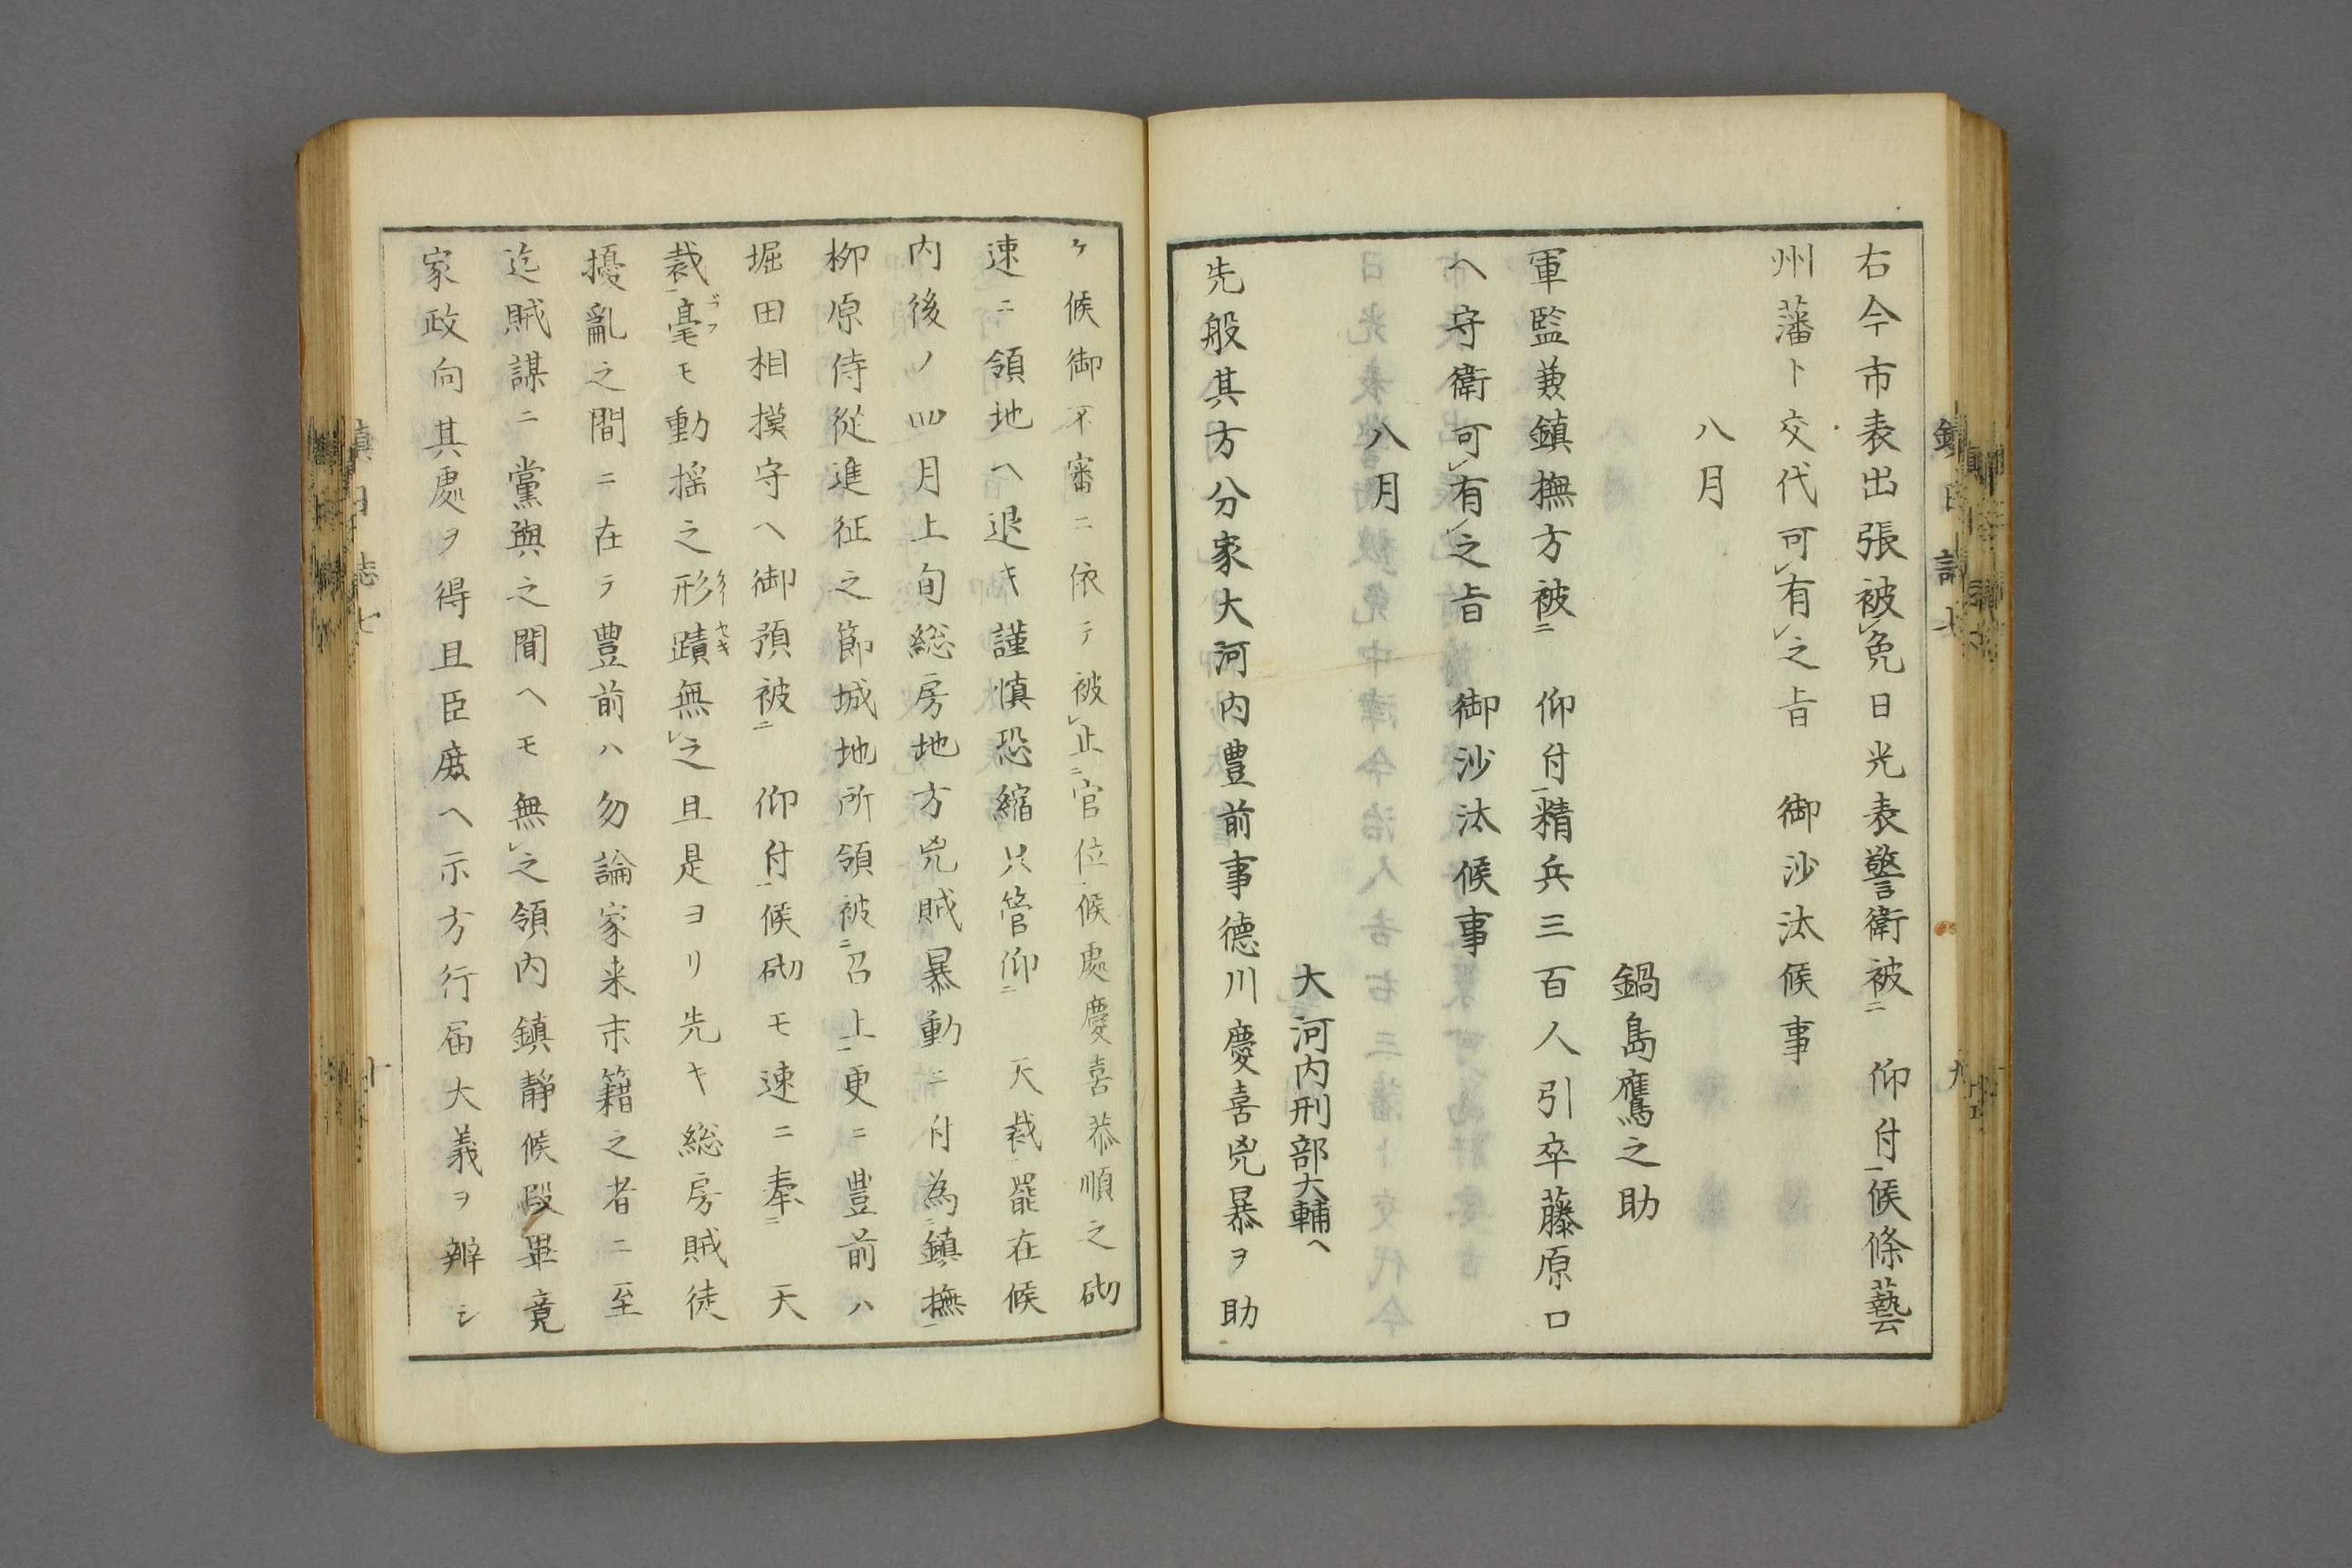 右今市表出張被㆑免日光表警衛被㆓　仰付㆒候條藝
州藩ト交代可㆑有㆑之旨　御沙汰候事
八月
鍋島鷹之助
軍監兼鎮撫方被㆓　仰付㆒精兵三百人引卒藤原口
ヘ守衛可㆑有㆑之旨　御沙汰候事
八月
大河内刑部大輔ヘ
先般其方分家大河内豊前事德川慶喜兇暴ヲ助
ケ候御不審ニ依テ被㆑止㆓官位㆒候處慶喜恭順之砌
速ニ領地ヘ退キ謹慎恐縮只管仰㆓　天裁㆒罷在候
内後ノ四月上旬総房地方兇賊暴動ニ付為㆓鎮撫㆒
柳原侍從進征之節城地所領被㆓召上㆒更ニ豊前ハ
堀田相摸守ヘ御預被㆓　仰付㆒候砌モ速ニ奉㆓　天
裁㆒毫モ動揺之形蹟無㆑之且是ヨリ先キ総房賊徒
擾亂之間ニ在テ豊前ハ勿論家来末籍之者ニ至
迄賊謀ニ黨與之聞ヘモ無㆑之領内鎮靜候段畢竟
家政向其處ヲ得且臣庻ヘ示方行届大義ヲ辨シ
鎮日誌七
九
十